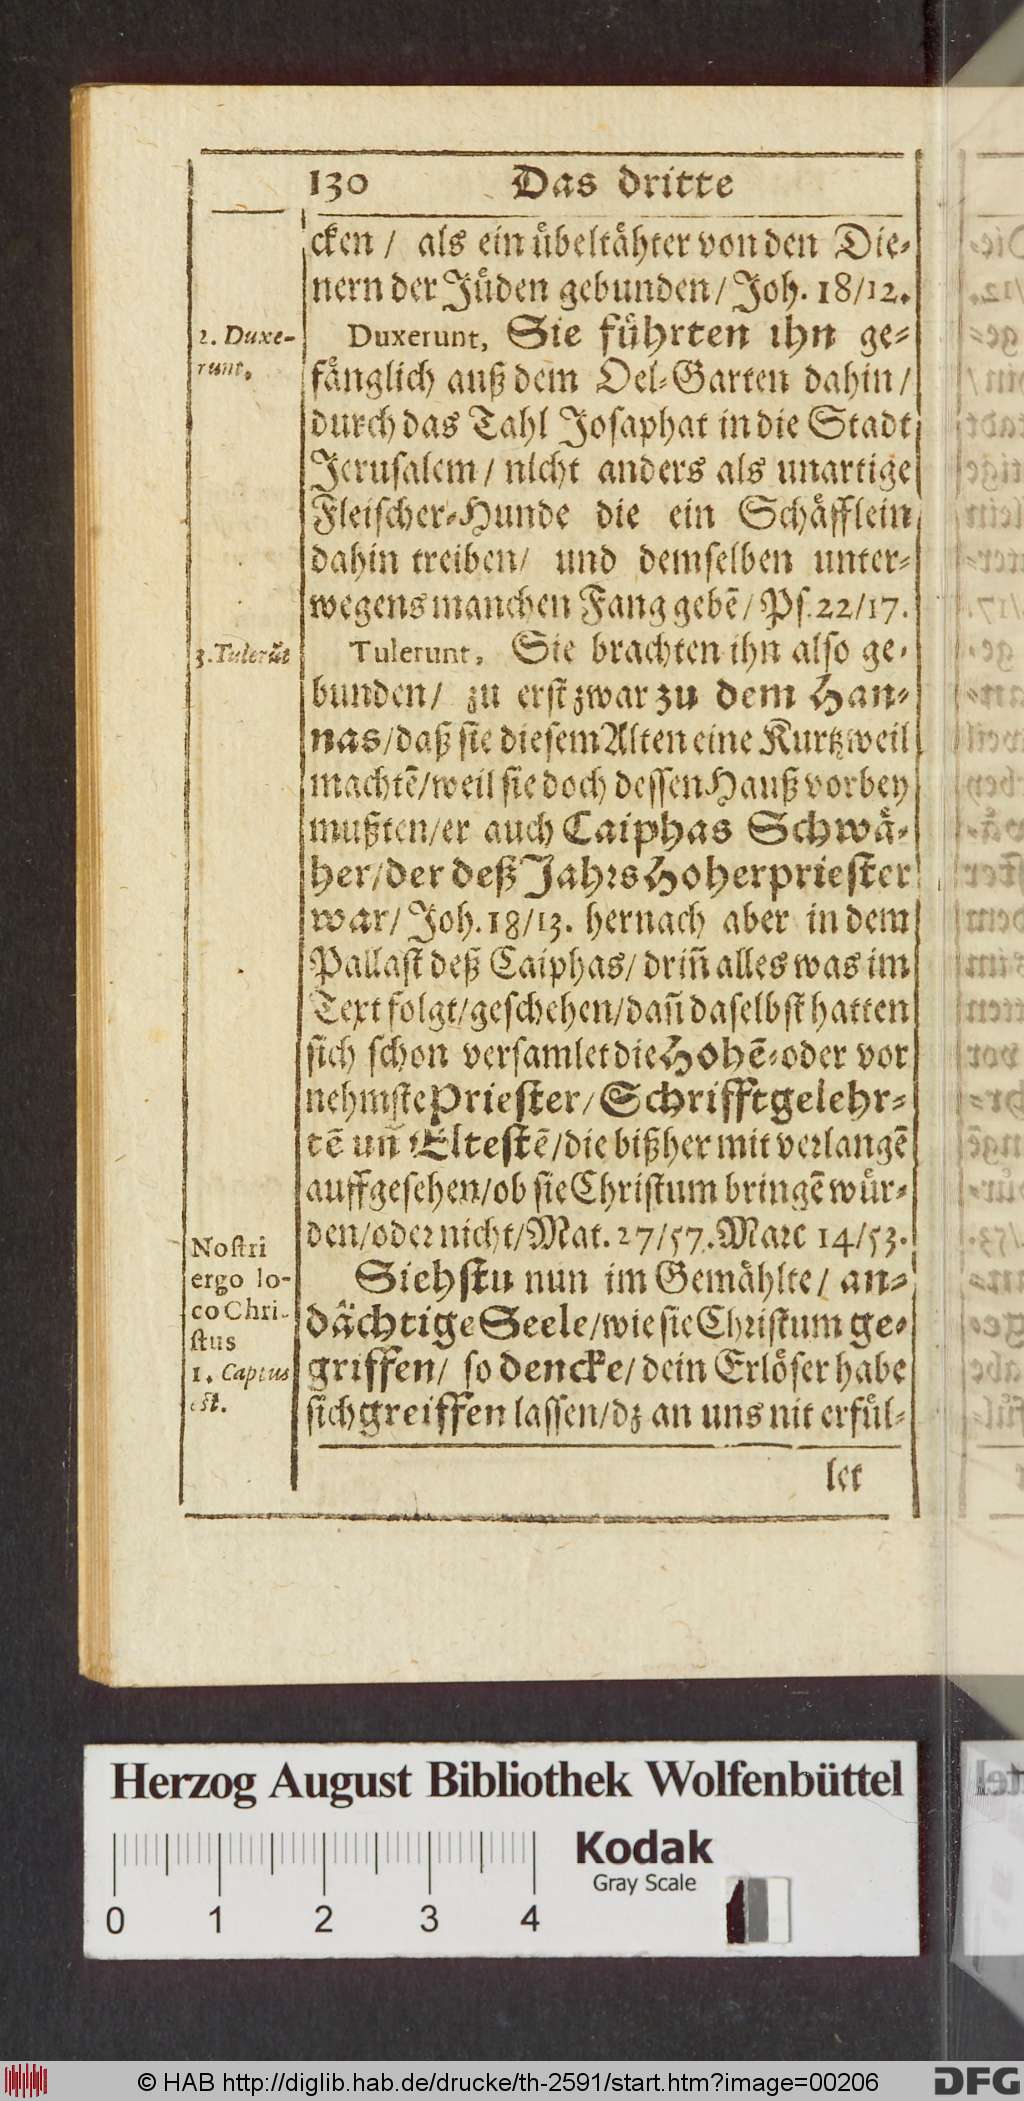 130 Das dritte
cken / als ein uͤbeltaͤhter von den Die⸗
nern der Juͤden gebunden / Joh. 18/12.
2. Duxe-
runt.
Duxerunt, Sie fuͤhrten ihn ge⸗
faͤnglich auß dem Oel⸗Garten dahin /
durch das Tahl Josaphat in die Stadt
Jerusalem / nicht anders als unartige
Fleischer⸗Hunde die ein Schaͤfflein
dahin treiben / und demselben unter⸗
wegens manchen Fang gebē / Ps. 22/17.
3. Tulerūt
Tulerunt, Sie brachten ihn also ge⸗
bunden / zu erst zwar zu dem Han⸗
nas / daß sie diesem Alten eine Kurtzweil
machtē / weil sie doch dessen Hauß vorbey
mußten / er auch Caiphas Schwaͤ⸗
her / der deß Jahrs Hoherpriester
war / Joh. 18/13. hernach aber in dem
Pallast deß Caiphas / driñ alles was im
Text folgt / geschehen / dañ daselbst hatten
sich schon versamlet die Hohē⸗oder vor
nehmste Priester / Schrifftgelehr⸗
tē uñ Eltestē / die bißher mit verlangē
auffgesehen / ob sie Christum bringē wuͤr⸗
den / oder nicht / Mat. 27/57. Marc 14/53.
Nostri
ergo lo-
co Chri-
stus
1. Captus
est.
Siehstu nun im Gemaͤhlte / an⸗
daͤchtige Seele / wie sie Christum ge⸗
griffen / so dencke / dein Erloͤser habe
sich greiffen lassen / dz an uns nit erfuͤl⸗
let
Herzog August Bibliothek Wolfenbüttel
Kodak
Gray Scale
0 1 2 3 4
© HAB http://diglib.hab.de/drucke/th-2591/start.htm?image=00206
DFG